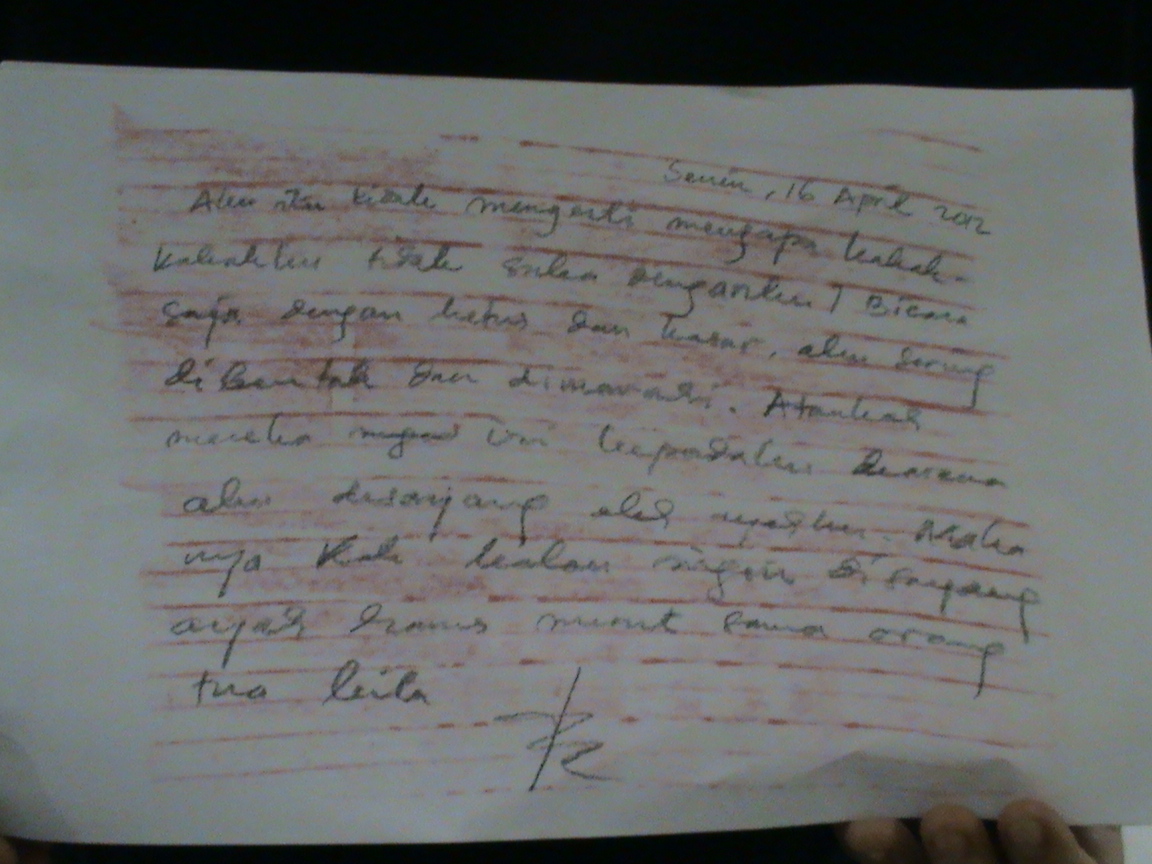 Senin, 16 April 2012
Aku itu tidak mengerti mengapa kakak-
kakakku tidak suka denganku! Bicara
saja dengan ketus dan kasar. aku sering
dibentak dan dimarahi. Ataukah
mereka iri kepadaku karena
aku disayang oleh ayahku. Maka
nya Kak kalau ingin disayang
ayah harus nurut sama orang
tua kita